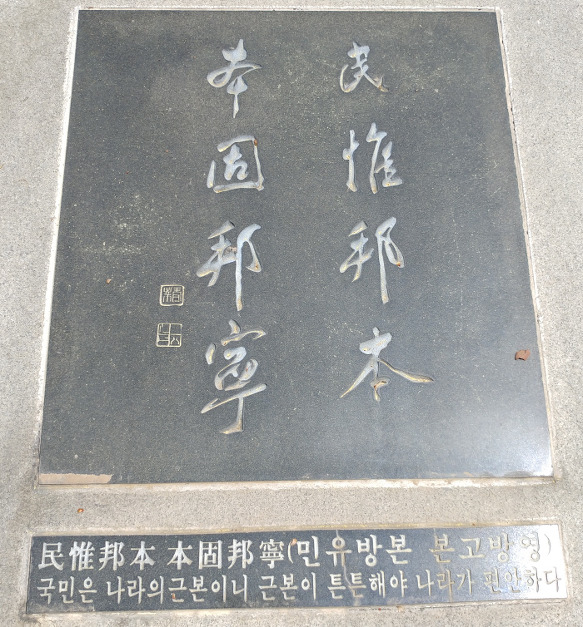 民惟邦本
本固邦寧
民惟邦本 本固邦寧(민유방본 본고방영)
국민은 나라의근본이니 근본이 튼튼해야 나라가 편안하다